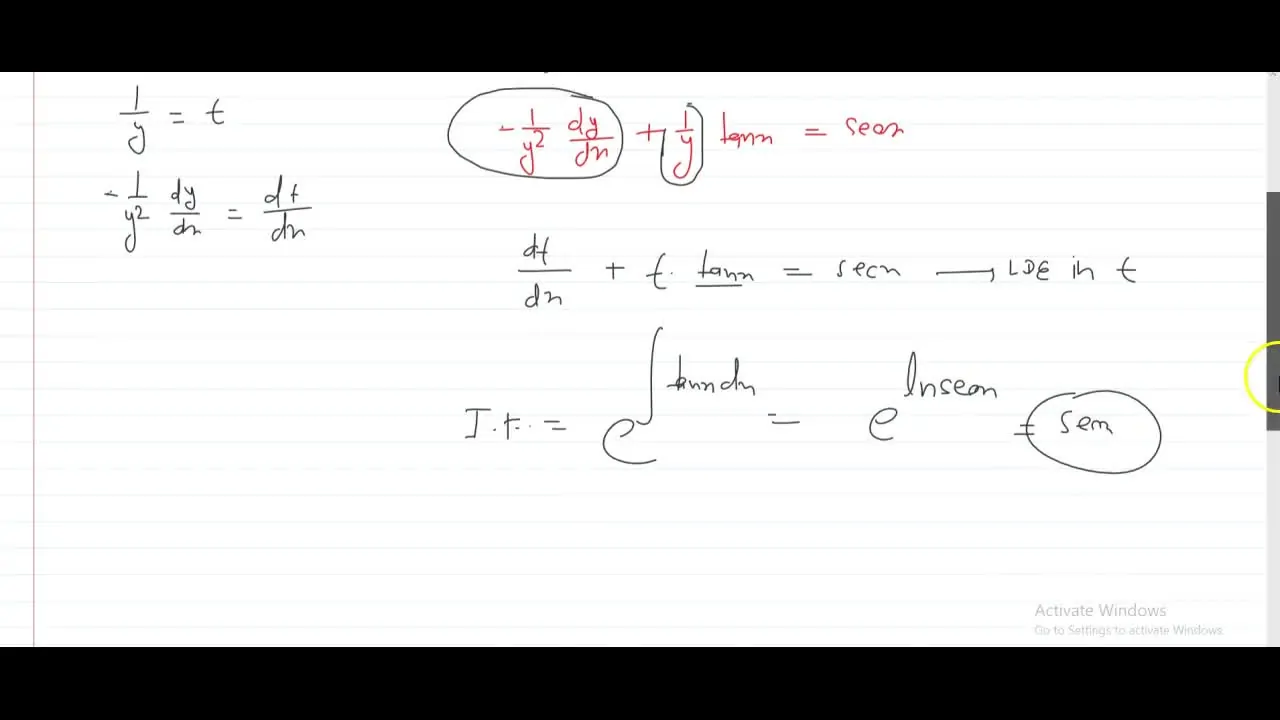 1/y = t
-1/y² dy/dx = dt/dx
-1/y² dy/dx + 1/y tanx = secx
dt/dx + t. tanx = secx → LDE in t
I.F. = e^∫tanxdx = e^lnsecx = secx
Activate Windows
Go to Settings to activate Windows.